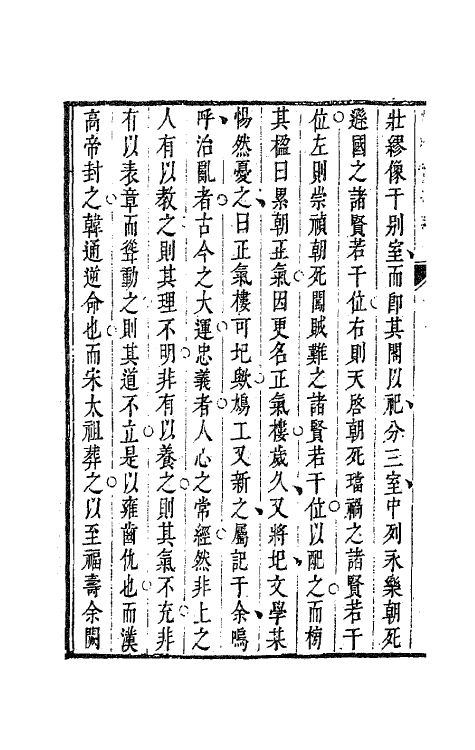 壯繆像于别室而卽其閣以祀分三室中列永樂朝死
遜國之諸賢若干位右則天啓朝死璫禍之諸賢若干
位左則崇禎朝死闖賊難之諸賢若干位以配之而榜
其楹曰累朝正氣因更名正氣樓歲久又將圯文學某
惕然憂之曰正氣樓可圯歟鳩工又新之屬記于余嗚
呼治亂者古今之大運忠義者人心之常經然非上之
人有以教之則其理不明非有以養之則其氣不充非
有以表章而聳動之則其道不立是以雍齒仇也而漢
高帝封之韓通逆命也而宋太祖葬之以至福壽余闕